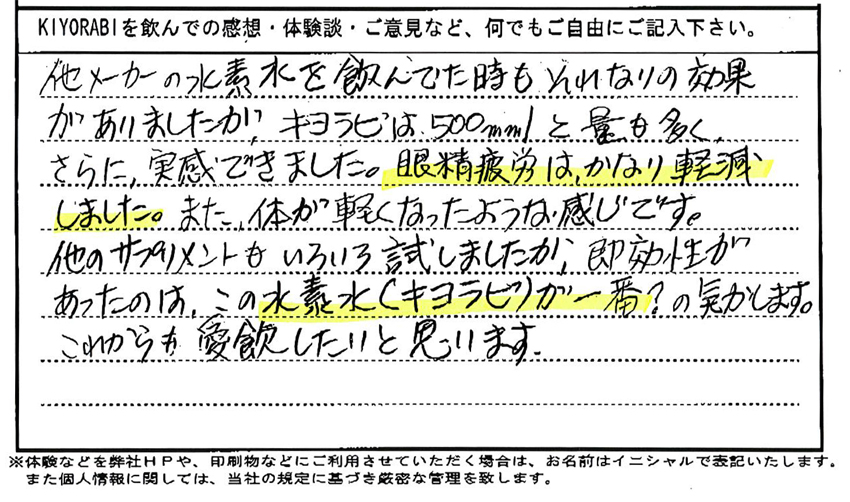 KIYORABIを飲んでの感想・体験談・ご意見など、何でもご自由にご記入下さい。
他メーカーの水素水を飲んでた時もそれなりの効果
がありましたが、キヨラビは、500mmlと量も多く、
さらに、実感できました。眼精疲労は、かなり軽減
しました。また、体が軽くなったような感じです。
他のサプリメントもいろいろ試しましたが、即効性が
あったのは、この水素水(キヨラビ)が一番?の気がします。
これからも愛飲したいと思います。
※体験などを弊社HPや、印刷物などにご利用させていただく場合は、お名前はイニシャルで表記いたします。
また個人情報に関しては、当社の規定に基づき厳密な管理を致します。